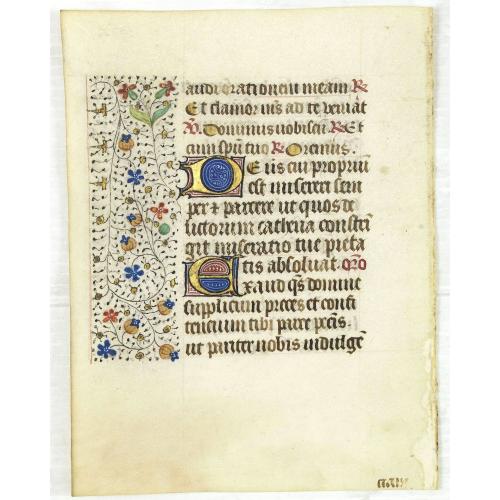 audi orationem meam R
Et clamor m̄s ad te veniāt
V. Dominus vobiscū R Et
cum spū tuo R Oremus.
Deus cui propriū
est misereri sem
per & parcere ut quos de
lictorum cathena constrī
git miseratio tue pieta
tis absoluat. oro
Exaudi qs domine
supplicum preces et confi
tencium tibi parce pctīs.
ut pariter nobis indulgē